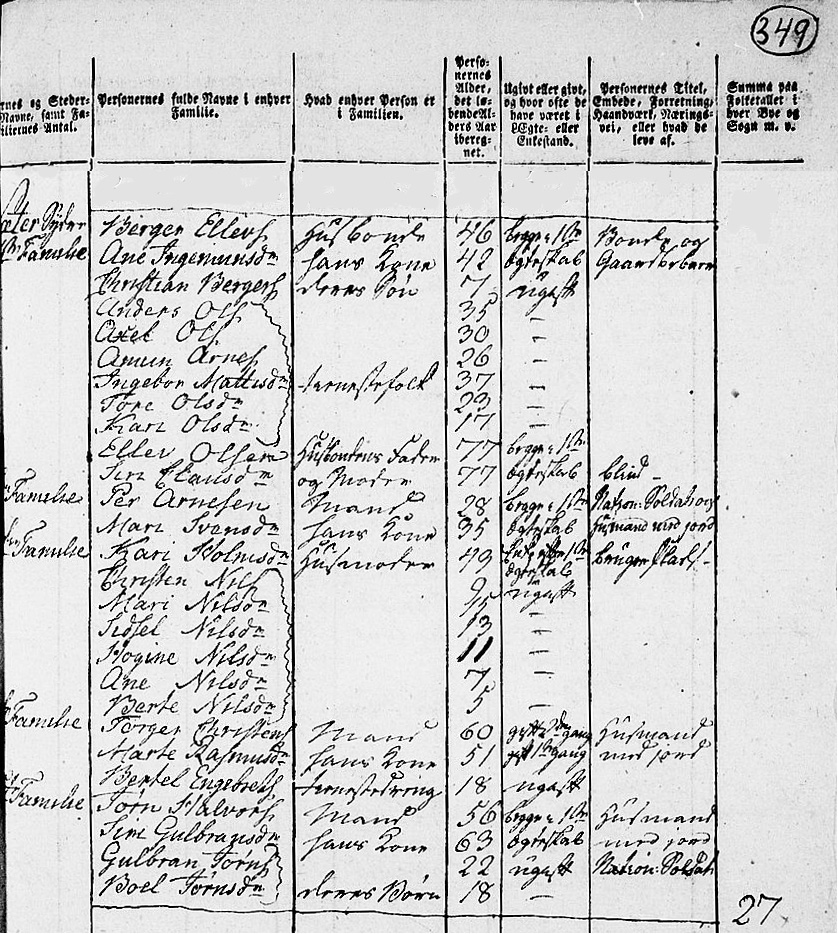 349
rnes og Steder- Personernes fulde Navne i enhver Hvad enhver Person er Perso-nernes Alder, det lø-bende Al-ders Aar ibereg-net. Ugivt eller givt, og hvor ofte de have været i Ægte- eller Enkestand. Personernes Titel, Embede, Forretning, Haandværk, Nærings-vei, eller hvad de leve af. Summa paa Folketallet i hver Bye og Sogn m. v.
Navne, samt Fa- Familie. i Familien.
iliernes Antal.
Berger Ellevs Husbonde 46 begge i 1ste Bonde og
Familie Ane Ingemunsdr hans Kone 42 Ægteskab Gaardbeboer
Christian Bergers deres Søn 7 ugift
Anders Ols 35 –
Axel Ols 30 –
Amun Arnes 26 –
Ingebor Mattisdr tienestefolk 37 –
Tore Olsdr 23 –
Kari Olsdr 17 –
Ellev Olsen Husbondens Fader 77 begge i 1ste
Siri Clausdr og Moder 77 Ægteskab blind –
Familie Per Arnesen Mand 28 begge i 1ste Nation: Soldat og
Mari Svensdr hans Kone 35 Ægteskab Huusmand med jord
Familie Kari Holmsdr Husmoder 49 1ste Ægteskab
Christen Nils 9 ugift
Mari Nilsdr 15 –
Sidsel Nilsdr 13 –
Hogine Nilsdr 11 –
Ane Nilsdr 7 –
Berte Nilsdr 5 –
Familie Torger Christens Mand 60 gift 2den gang Husmand
Marte Rasmusdr hans Kone 51 gift 1ste gang med jord
Bertel Engebrets tienestedreng 18 ugift
Familie Torn Halvors Mand 56 begge i 1ste Husmand
Siri Gulbransdr hans Kone 63 Ægteskab med jord
Gulbran Torns 22 ugift Nation: Soldat
Boel Tornsdr deres Børn 18 –
27